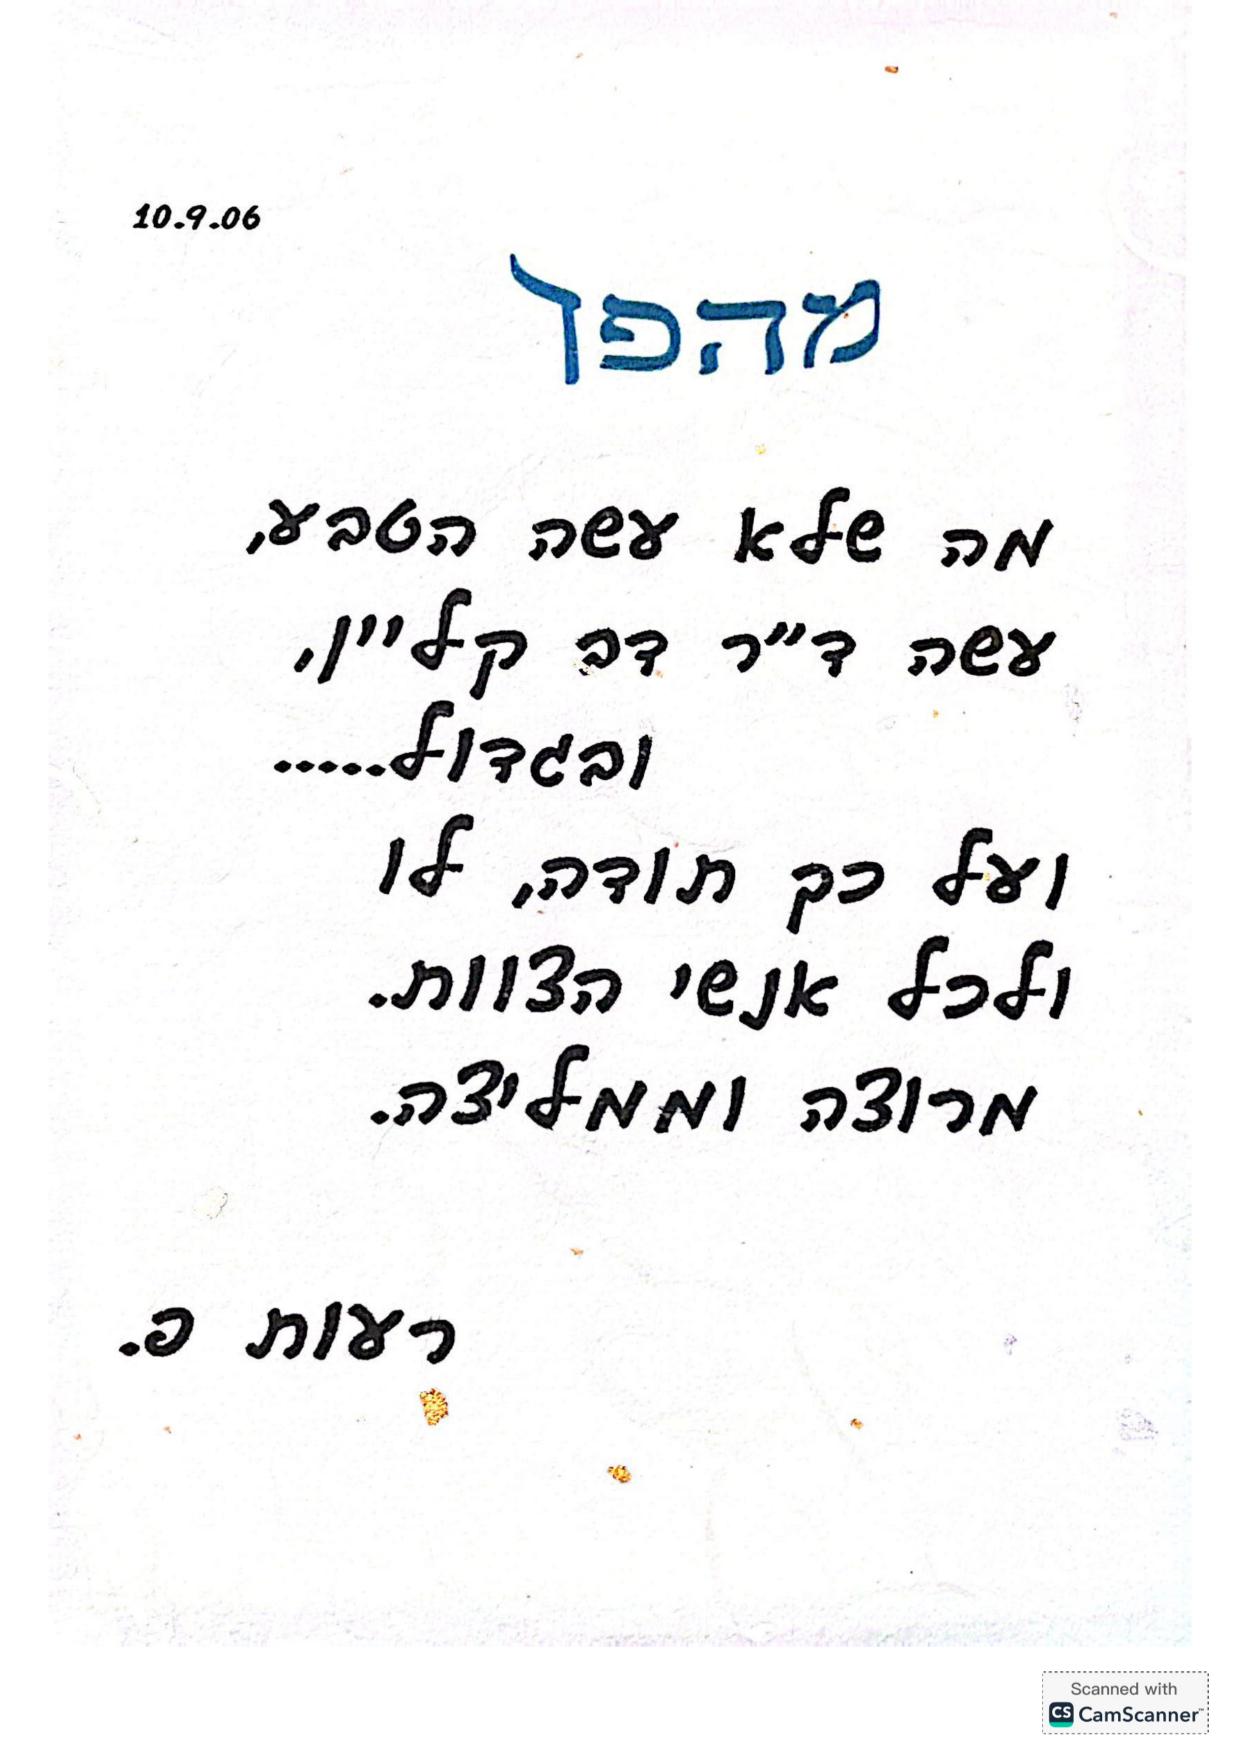 10.9.06
מהפך
מה שלא עשה הטבע,
עשה ד"ר דב קליין,
ובגדול.....
ועל כך תודה, לו
ולכל אנשי הצוות.
מרוצה וממליצה.
רעות פ.
Scanned with
CS CamScanner